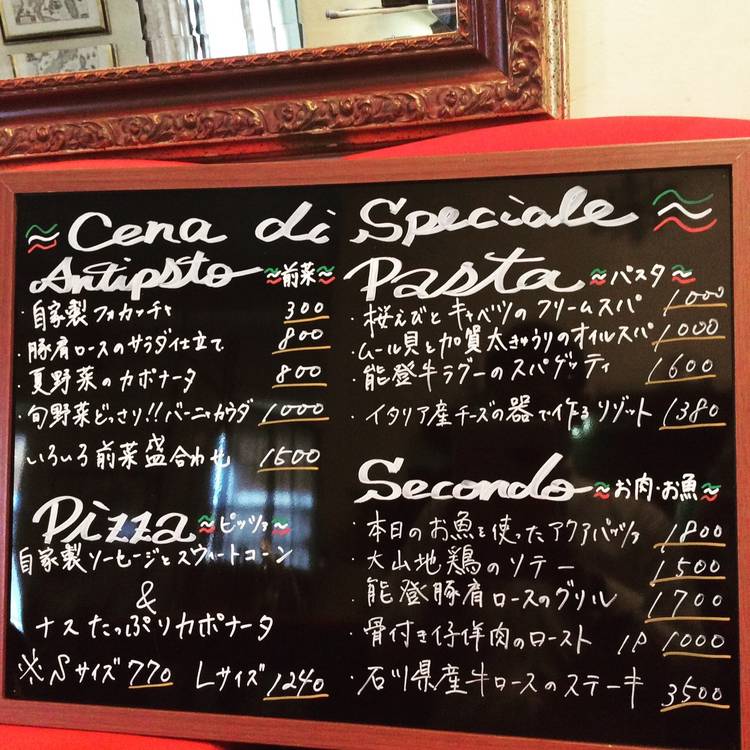 Cena di Speciale
Antipsto 前菜
・自家製フォカッチャ 300
・豚肩ロースのサラダ仕立て 800
・夏野菜のカポナータ 800
・旬野菜どっさり!!バーニャカウダ 1000
・いろいろ前菜盛合わせ 1500
Pizza ピッツァ
自家製ソーセージとスウィートコーン
&
ナスたっぷりカポナータ
※Sサイズ 770 Lサイズ 1240
Pasta パスタ
・桜えびとキャベツのクリームスパ 1000
・ムール貝と加賀太きゅうりのオイルスパ 1000
・能登牛ラグーのスパゲッティ 1600
・イタリア産チーズの器で作るリゾット 1380
Secondo お肉・お魚
・本日のお魚を使ったアクアパッツァ 1800
・大山地鶏のソテー 1500
・能登豚肩ロースのグリル 1700
・骨付き仔羊肉のロースト 1P 1000
・石川県産牛ロースのステーキ 3500